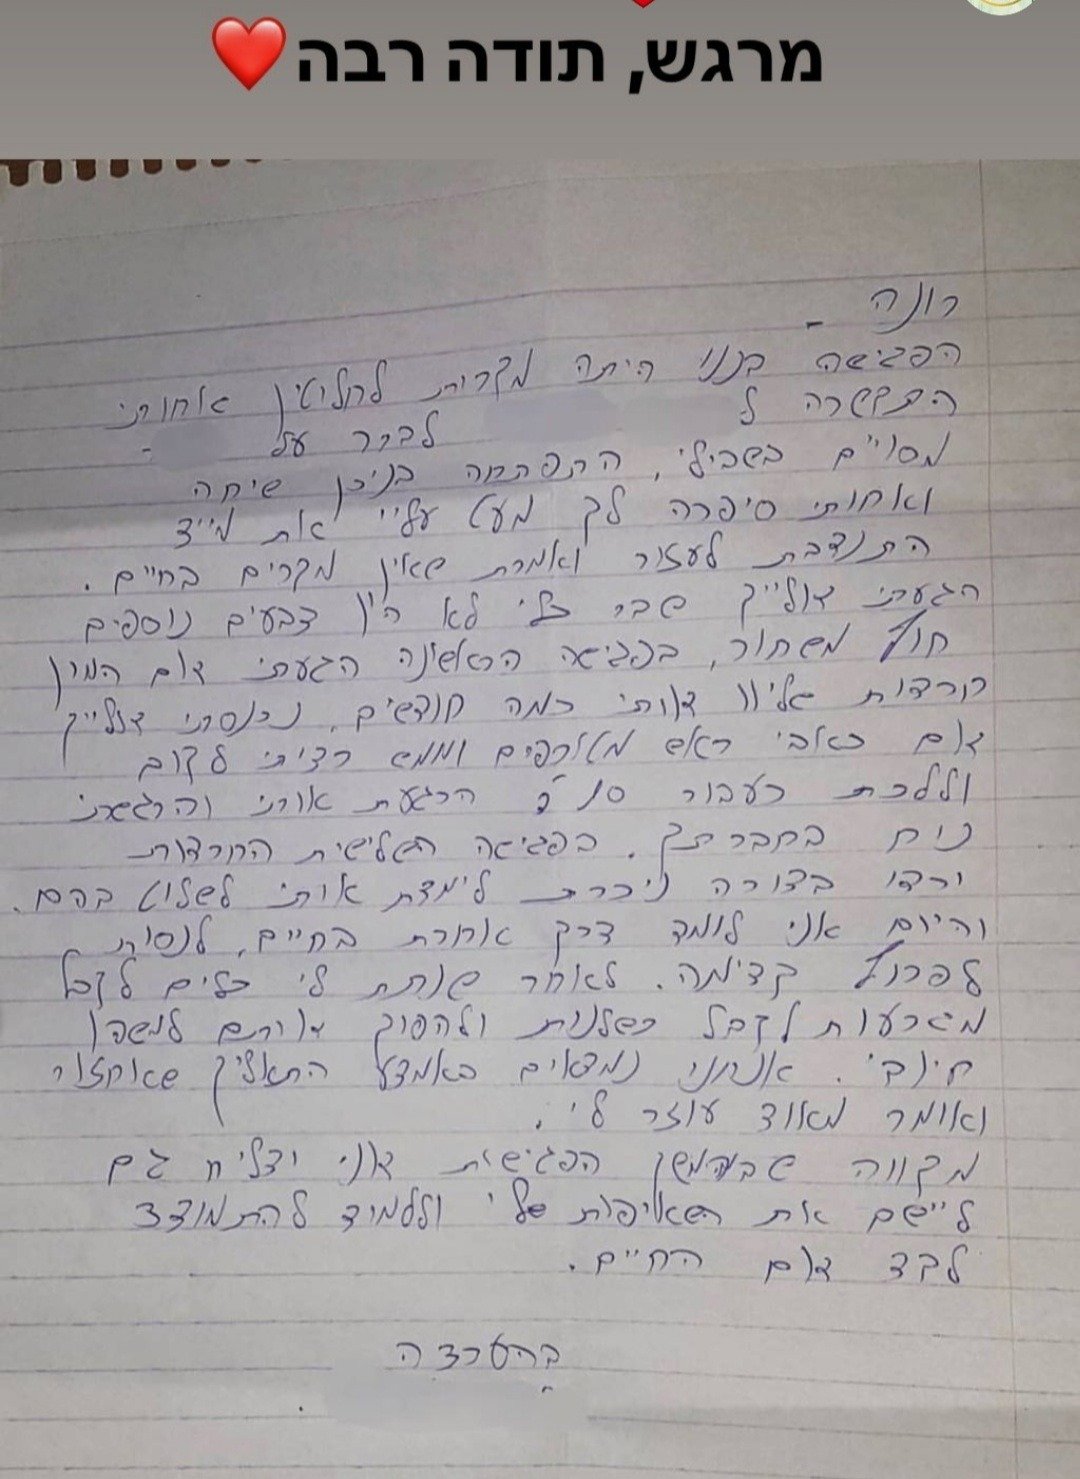 מרגש, תודה רבה
רונה -
הפגישה בננו היתה מקרית לחלוטין אחותי
התקשרה ל
לברר על
מסויים בשבילי, התפתחה בניכן שיחה
ואחותי סיפרה לך מעט עליי את מייד
התנדבת לעזור ואמרת שאין מקרים בחיים.
הגעתי אלייך שבר כלי לא היו צבעים נוספים
חוץ משחור, בפגישה הראשונה הגעתי עם המון
חרדות שליוו אותי כמה חודשים. נכנסתי אלייך
עם כאבי ראש מטורפים וממש רציתי לקום
וללכת כעבור הרגעת אותי והרגשתי
נוח בחברתך. בפגישה השלישית החרדות
ירדו בצורה ניכרת לימדת אותי לשלוט בהם.
והיום אני לומד דרך אחרת בחיים, לנסות
לפרוץ קדימה. לאחר שנתת לי כלים לקבל
מגרעות לקבל כשלנות ולהפוך אותם למשהו
חיובי. אנחנו נמצאים באמצע התאליך שאחזור
ואומר מאוד עוזר לי.
מקווה שבהמשך הפגישות אני יצליח גם
ליישם את השאיפות שלי וללמוד להתמודד
לבד עם החיים.
בהערצה